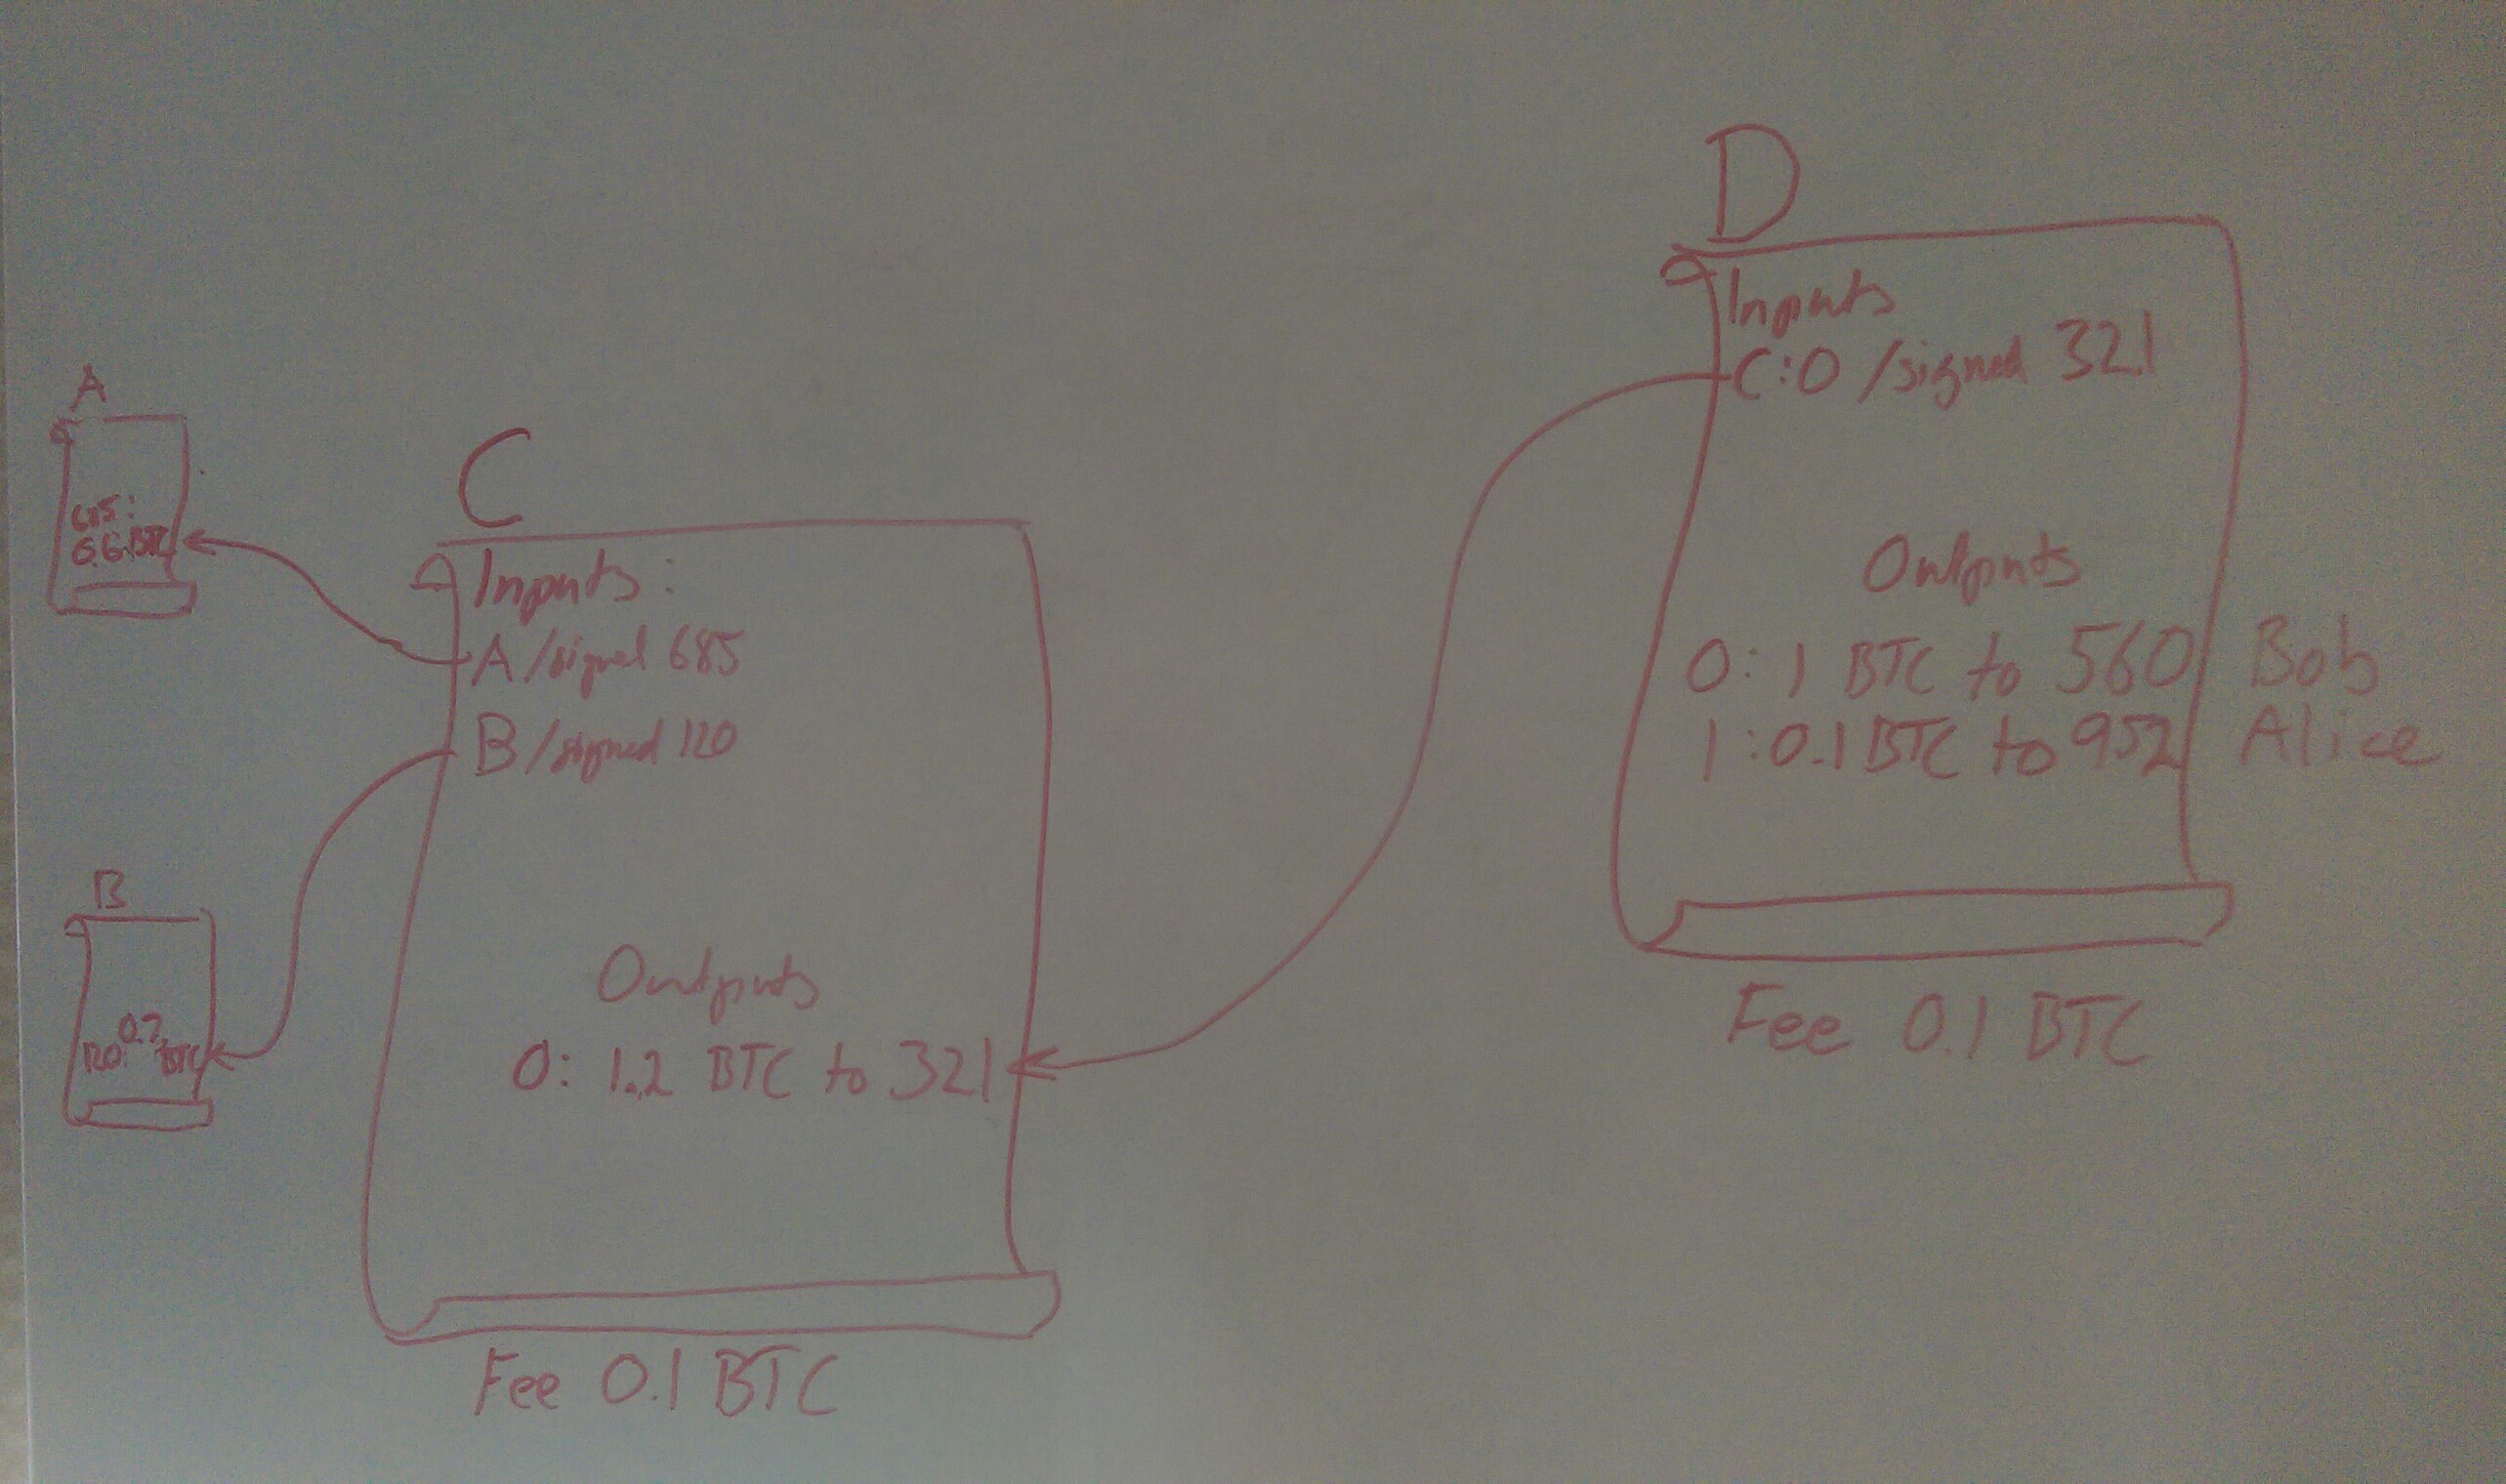 A
685:
0.6 BTC
B
0.7
120: BTC
C
Inputs:
A/signed 685
B/signed 120
Outputs
0: 1.2 BTC to 321
Fee 0.1 BTC
D
Inputs
C:0 /signed 321
Outputs
0: 1 BTC to 560 Bob
1: 0.1 BTC to 952 Alice
Fee 0.1 BTC